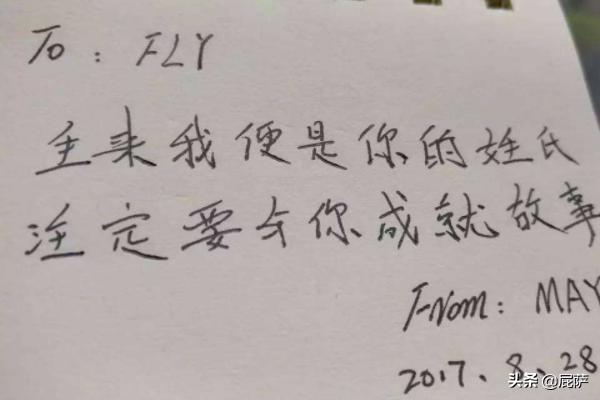 To: FLY
主来我便是你的姓氏
注定要与你成就故事
From: MAY
2017.8.28
头条@屁萨